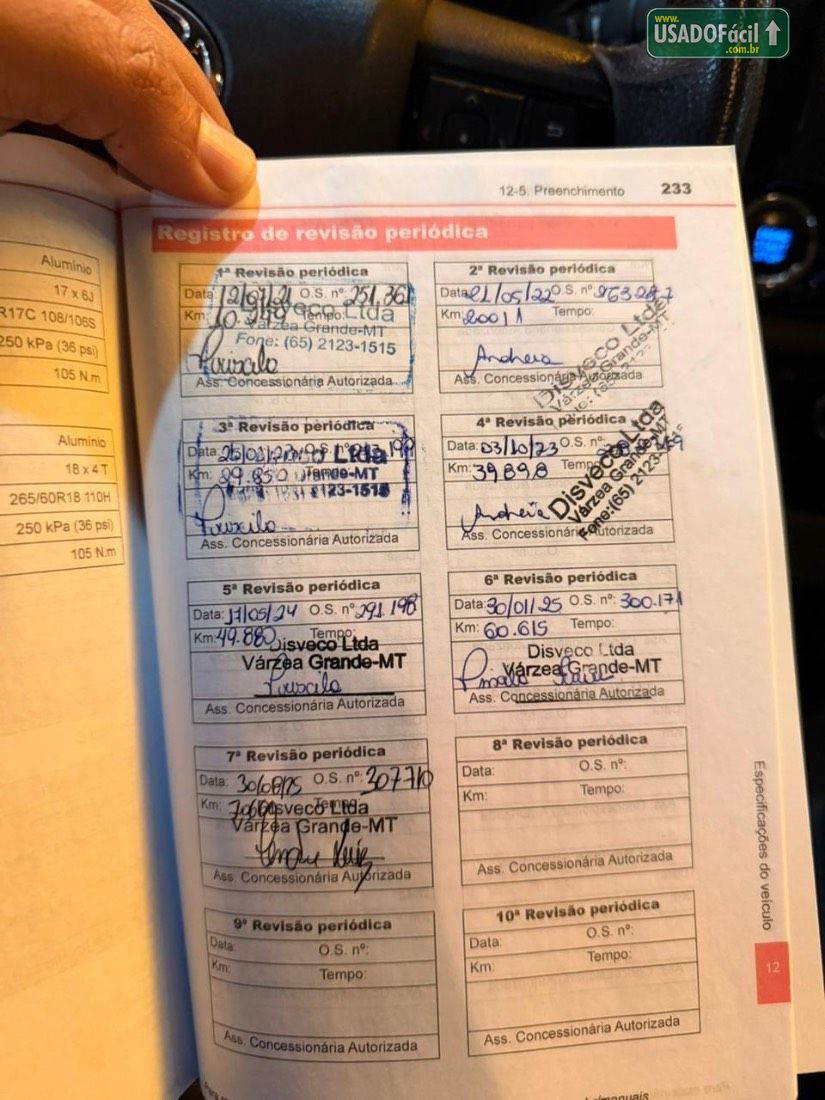 www.
USADOFácil
.com.br
12-5. Preenchimento 233
Alumínio
17 x 6J
R17C 108/106S
250 kPa (36 psi)
105 N.m
Alumínio
18 x 4 T
265/60R18 110H
250 kPa (36 psi)
105 N.m
Registro de revisão periódica
1ª Revisão periódica
Data: O.S. nº 251.361
Km: Tempo:
Disveco Ltda
Várzea Grande-MT
Fone: (65) 2123-1515
Priscila
Ass. Concessionária Autorizada
2ª Revisão periódica
Data: 21/05/22 O.S. nº
Km: 20011 Tempo:
Disveco Ltda
Várzea Grande-MT
Andreia
Ass. Concessionária Autorizada
3ª Revisão periódica
Data: O.S. nº
Km: 29.850 Tempo:
Ltda
Grande-MT
2123-1515
Priscila
Ass. Concessionária Autorizada
4ª Revisão periódica
Data: 03/10/23 O.S. nº
Km: 39898 Tempo:
Disveco Ltda
Várzea Grande-MT
Fone: (65) 2123-
Andreia
Ass. Concessionária Autorizada
5ª Revisão periódica
Data: 17/05/24 O.S. nº: 291.198
Km: 49.880 Tempo:
Disveco Ltda
Várzea Grande-MT
Priscila
Ass. Concessionária Autorizada
6ª Revisão periódica
Data: 30/01/25 O.S. nº: 300.171
Km: 60.615 Tempo:
Disveco Ltda
Várzea Grande-MT
Ass. Concessionária Autorizada
7ª Revisão periódica
Data: 30/08/25 O.S. nº: 307710
Km: Tempo:
Disveco Ltda
Várzea Grande-MT
Ass. Concessionária Autorizada
8ª Revisão periódica
Data: O.S. nº:
Km: Tempo:
Ass. Concessionária Autorizada
9ª Revisão periódica
Data: O.S. nº:
Km: Tempo:
Ass. Concessionária Autorizada
10ª Revisão periódica
Data: O.S. nº:
Km: Tempo:
Ass. Concessionária Autorizada
Especificações do veículo
12